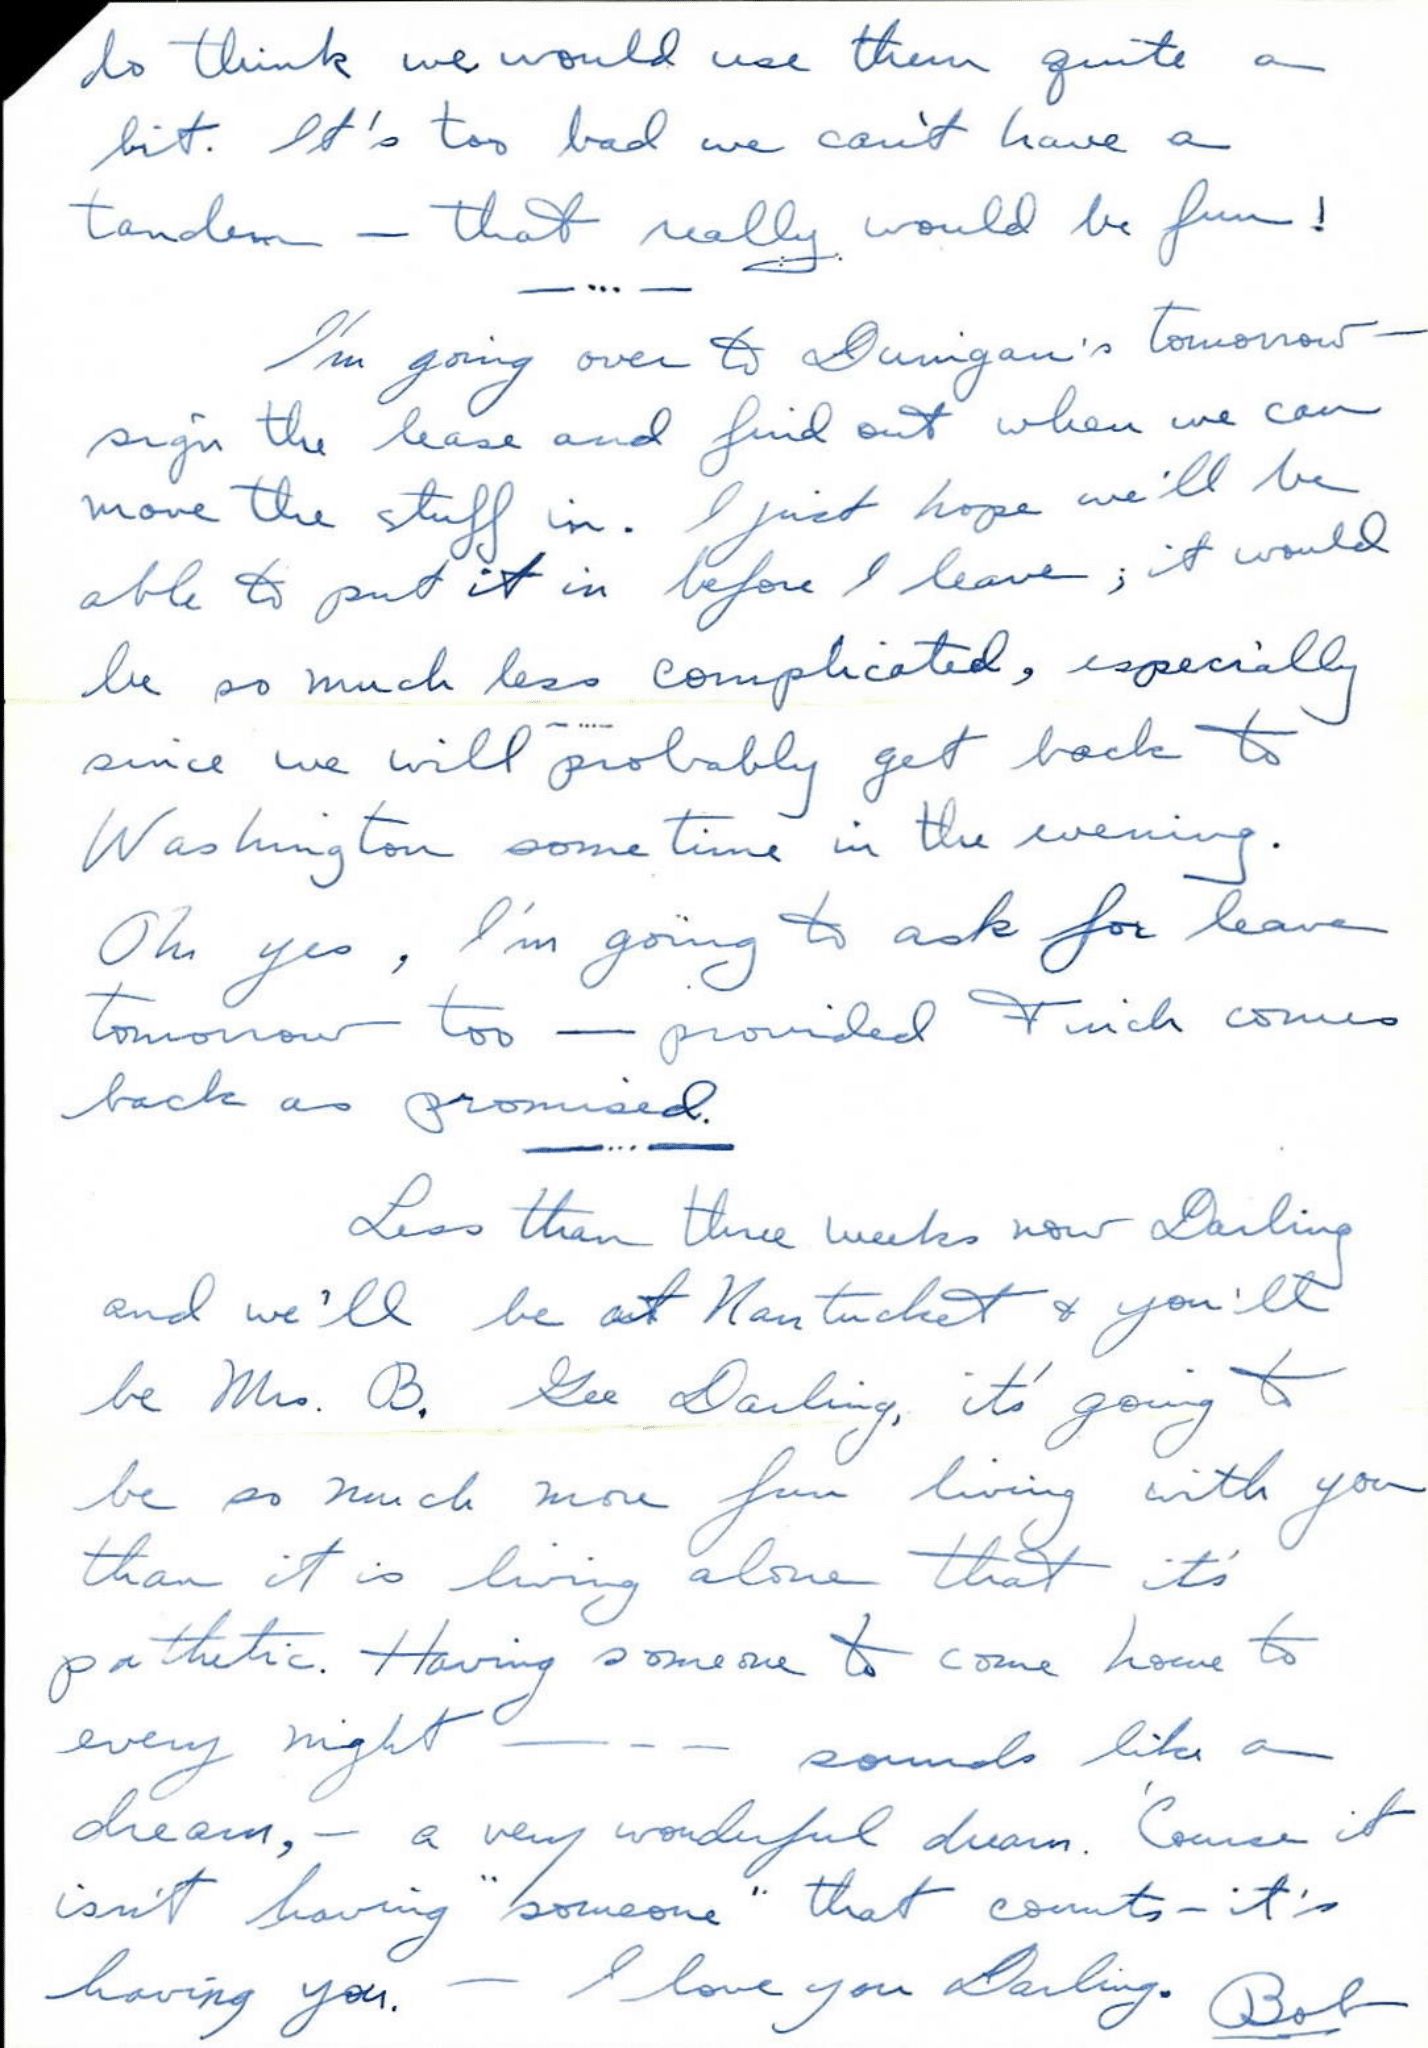 do think we would use them quite a
bit. It's too bad we can't have a
tandem — that really would be fun!
— ... —
I'm going over to Dunigan's tomorrow —
sign the lease and find out when we can
move the stuff in. I just hope we'll be
able to put it in before I leave; it would
be so much less complicated, especially
since we will probably get back to
Washington some time in the evening.
Oh yes, I'm going to ask for leave
tomorrow too — provided Finch comes
back as promised.
— ... —
Less than three weeks now Darling
and we'll be at Nantucket & you'll
be Mrs. B. Gee Darling, it's going to
be so much more fun living with you
than it is living alone that it's
pathetic. Having someone to come home to
every night — - - - sounds like a
dream, — a very wonderful dream. 'Course it
isn't having "someone" that counts — it's
having you. — I love you Darling. Bob